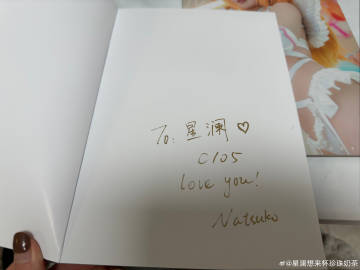 To: 星澜♡
C105
love you!
Natsuko
@星澜想来杯珍珠奶茶